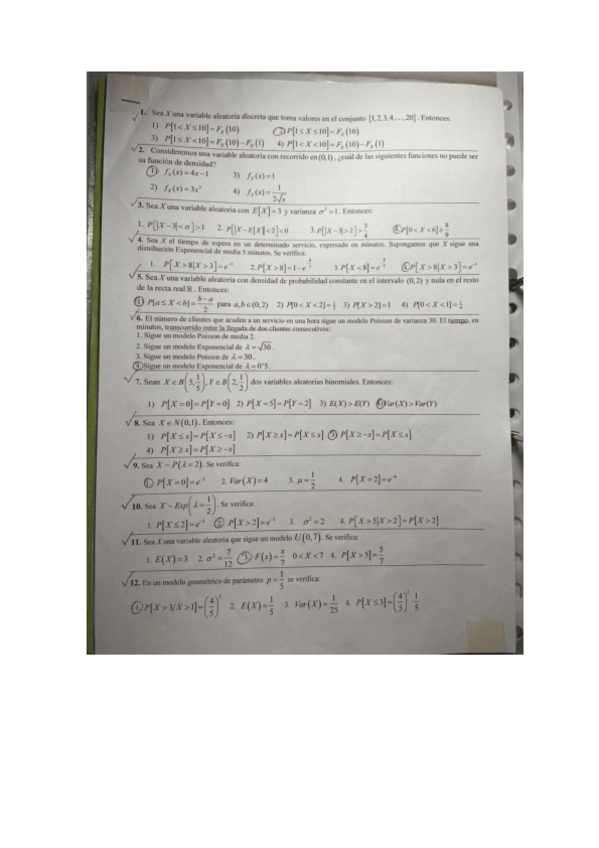 1. Sea X una variable aleatoria discreta que toma valores en el conjunto {1,2,3,4,...,20}. Entonces:
1) P[1< X ≤10]= F_X(10) 2) P[1≤ X ≤10]= F_X(10)
3) P[1≤ X <10]= F_X(10)-F_X(1) 4) P[1< X <10]= F_X(10)-F_X(1)
2. Consideremos una variable aleatoria con recorrido en (0,1), ¿cuál de las siguientes funciones no puede ser
su función de densidad?
1) f_X(x)=4x-1 3) f_X(x)=1
2) f_X(x)=3x² 4) f_X(x)=1/(2√x)
3. Sea X una variable aleatoria con E[X]=3 y varianza σ²=1. Entonces:
1. P[|X-3|<σ]>1 2. P[|X-E[X]|<2]<0 3. P[|X-3|>2]>3/4 4. P[0<X<6]≥8/9
4. Sea X el tiempo de espera en un determinado servicio, expresado en minutos. Supongamos que X sigue una
distribución Exponencial de media 5 minutos. Se verifica:
1. P[X>8|X>3]=e⁻¹ 2. P[X>8]=1-e 3. P[X<8]=e P[X>8|X>3]=e⁻¹
5. Sea X una variable aleatoria con densidad de probabilidad constante en el intervalo (0,2) y nula en el resto
de la recta real ℝ. Entonces:
1) P[a≤X<b]=(b-a)/2 para a,b∈(0,2) 2) P[0<X<2]=½ 3) P[X>2]=1 4) P[0<X<1]=¼
6. El número de clientes que acuden a un servicio en una hora sigue un modelo Poisson de varianza 30. El tiempo, en
minutos, transcurrido entre la llegada de dos clientes consecutivos:
1. Sigue un modelo Poisson de media 2.
2. Sigue un modelo Exponencial de λ=√30.
3. Sigue un modelo Poisson de λ=30.
4. Sigue un modelo Exponencial de λ=0'5.
7. Sean X∈B(5,1/5), Y∈B(2,1/2) dos variables aleatorias binomiales. Entonces:
1) P[X=0]=P[Y=0] 2) P[X=5]=P[Y=2] 3) E(X)>E(Y) 4) Var(X)>Var(Y)
8. Sea X∈N(0,1). Entonces:
1) P[X≤x]=P[X≤-x] 2) P[X≥x]=P[X≤x] 3) P[X≥-x]=P[X≤x]
4) P[X≥x]=P[X≥-x]
9. Sea X~P(λ=2). Se verifica:
1. P[X=0]=e⁻² 2. Var(X)=4 3. μ=1/2 4. P[X=2]=e⁻⁴
10. Sea X~Exp(λ=1/2). Se verifica:
1. P[X≤2]=e⁻¹ 2. P[X>2]=e⁻¹ 3. σ²=2 4. P[X>5|X>2]=P[X>2]
11. Sea X una variable aleatoria que sigue un modelo U(0,7). Se verifica:
1. E(X)=3 2. σ²=7/12 3. F(x)=x/7 0<X<7 4. P[X>5]=5/7
12. En un modelo geométrico de parámetro p=1/5 se verifica:
1. P[X>3/X>1]=(4/5)² 2. E(X)=1/5 3. Var(X)=1/25 4. P[X≤3]=(4/5)³·1/5